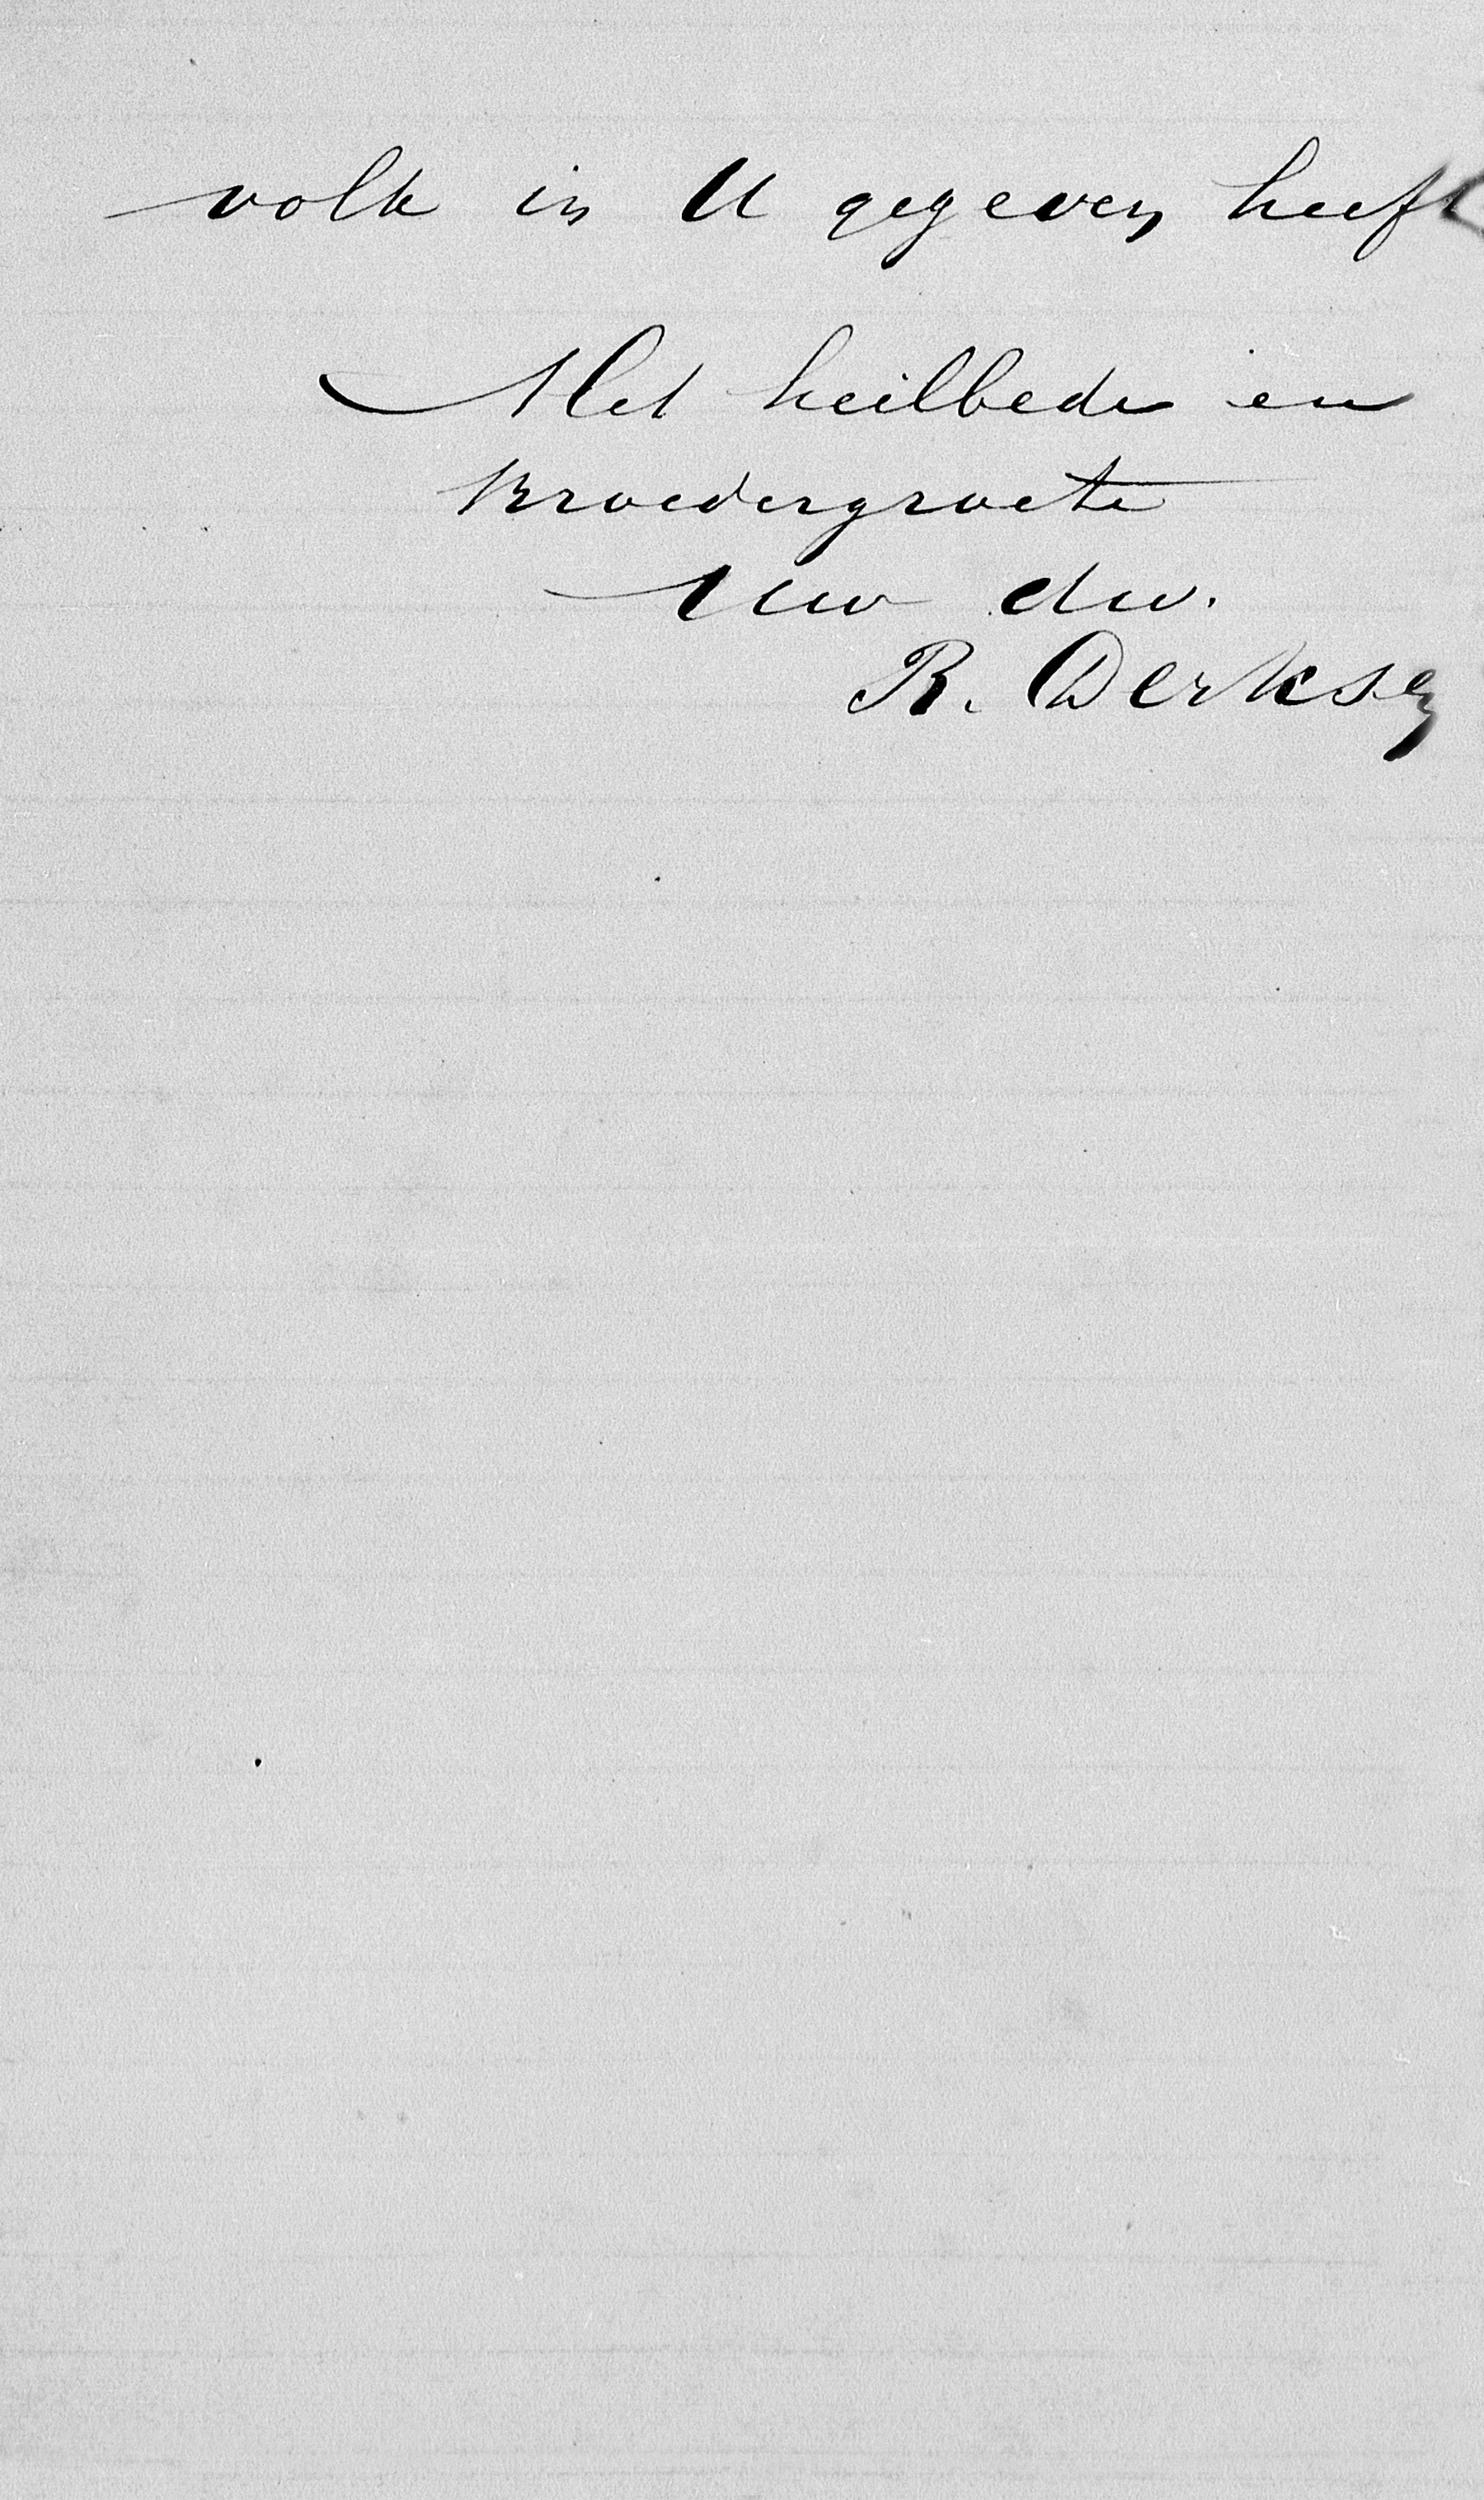 volk in U gegeven heeft
Met heilbede en
Broedergroete
Uw dw.
R. Derksen